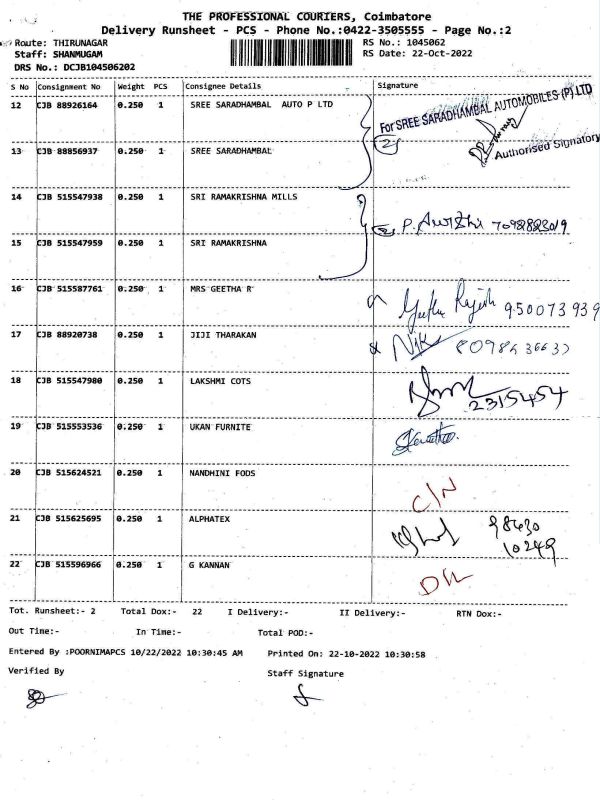 THE PROFESSIONAL COURIERS, Coimbatore
Delivery Runsheet - PCS - Phone No.:0422-3505555 - Page No.:2
Route: THIRUNAGAR RS No.: 1045062
Staff: SHANMUGAM RS Date: 22-Oct-2022
DRS No.: DCJB104506202
S No Consignment No Weight PCS Consignee Details Signature
12 CJB 88926164 0.250 1 SREE SARADHAMBAL AUTO P LTD
For SREE SARADHAMBAL AUTOMOBILES (P) LTD
Authorised Signatory
13 CJB 88856937 0.250 1 SREE SARADHAMBAL
14 CJB 515547938 0.250 1 SRI RAMAKRISHNA MILLS
70928823019
15 CJB 515547959 0.250 1 SRI RAMAKRISHNA
16 CJB 515587761 0.250 1 MRS GEETHA R
Geetha Rajesh 950073939
17 CJB 88920738 0.250 1 JIJI THARAKAN
18 CJB 515547980 0.250 1 LAKSHMI COTS
2315454
19 CJB 515553536 0.250 1 UKAN FURNITE
20 CJB 515624521 0.250 1 NANDHINI FODS
C/N
21 CJB 515625695 0.250 1 ALPHATEX
98430
10249
22 CJB 515596966 0.250 1 G KANNAN
D/L
Tot. Runsheet:- 2 Total Dox:- 22 I Delivery:- II Delivery:- RTN Dox:-
Out Time:- In Time:- Total POD:-
Entered By :POORNIMAPCS 10/22/2022 10:30:45 AM Printed On: 22-10-2022 10:30:58
Verified By Staff Signature